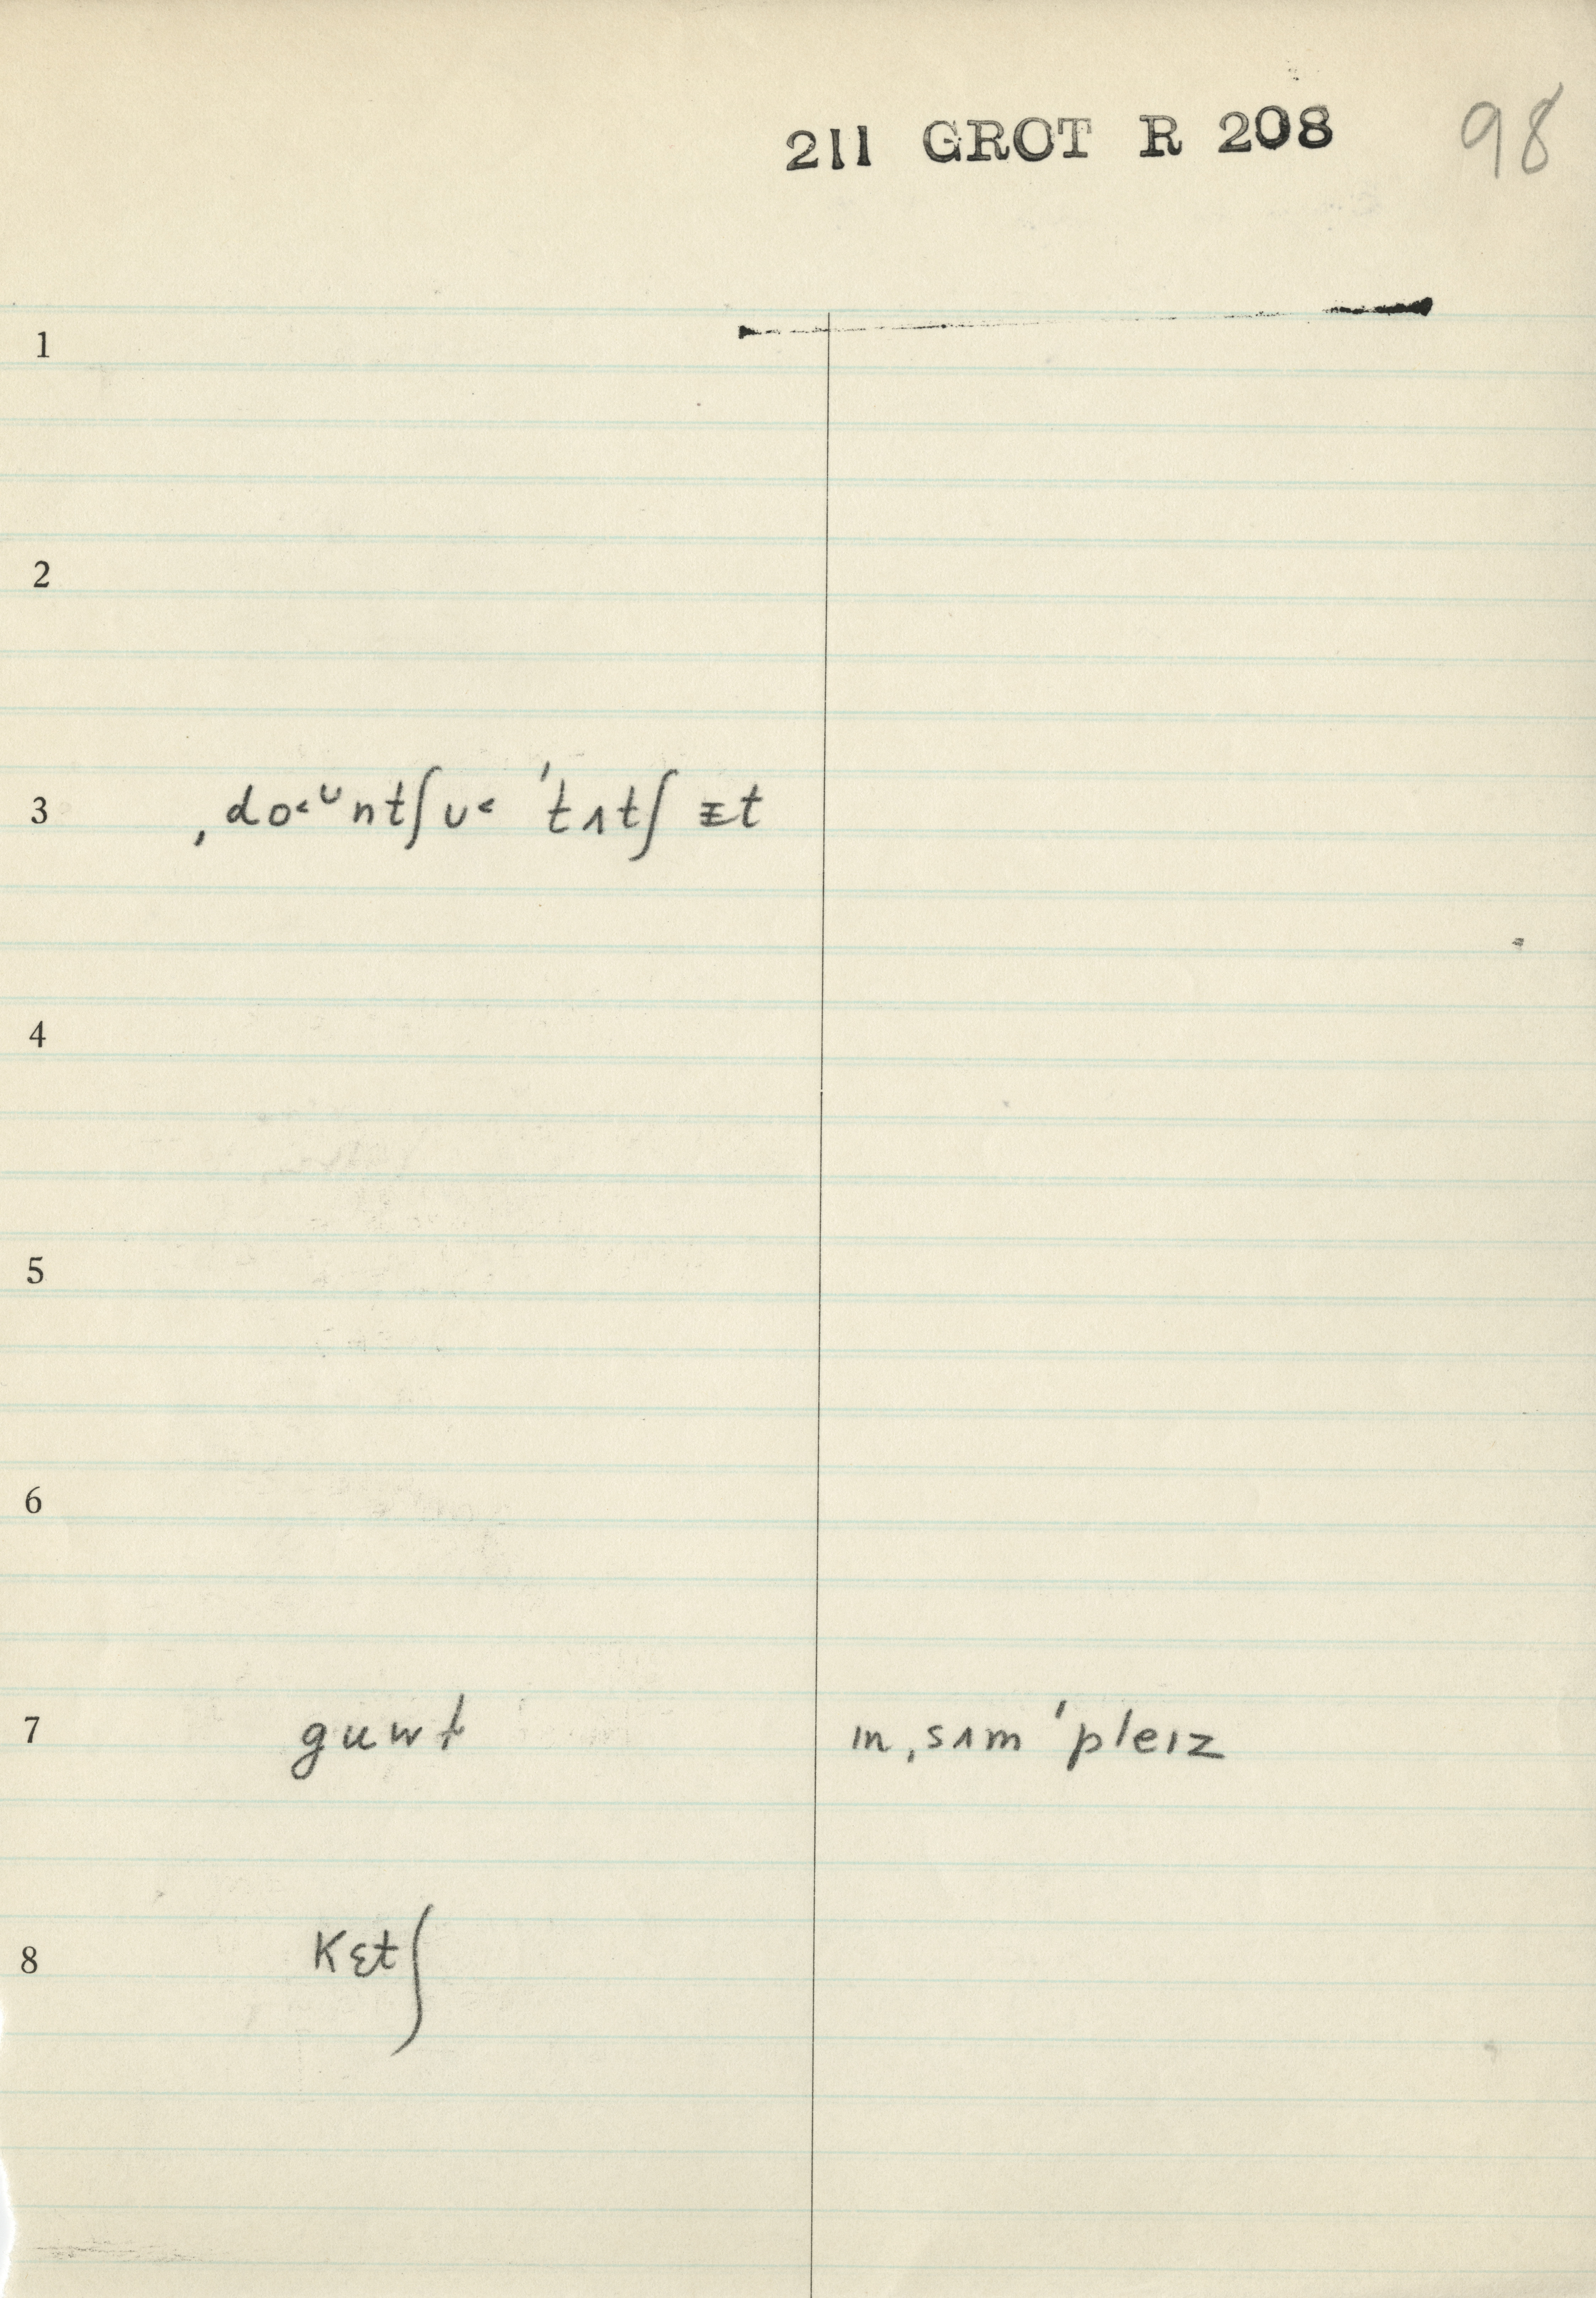 211 GROT R 208 98
1
2
3 ˌdo˂ᴜntʃᴜ˂ ˈtʌtʃ ɪt
4
5
6
7 guwt ɪn ˌsʌm ˈpleɪz
8 kɛtʃ